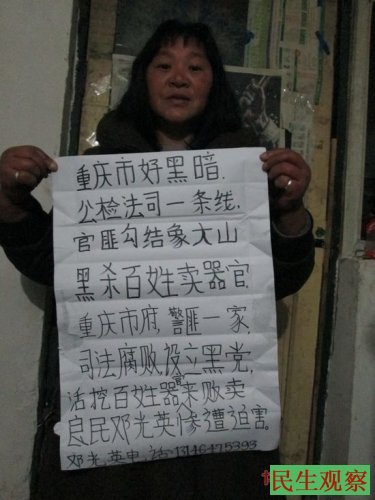 重庆市好黑暗.
公检法司一条线.
官匪勾结象大山
黑杀百姓卖器官
重庆市府,警匪一家,
司法腐败设立黑党,
活挖百姓器官来贩卖
良民邓光英惨遭迫害.
邓光英电话:13146475393
民生观察